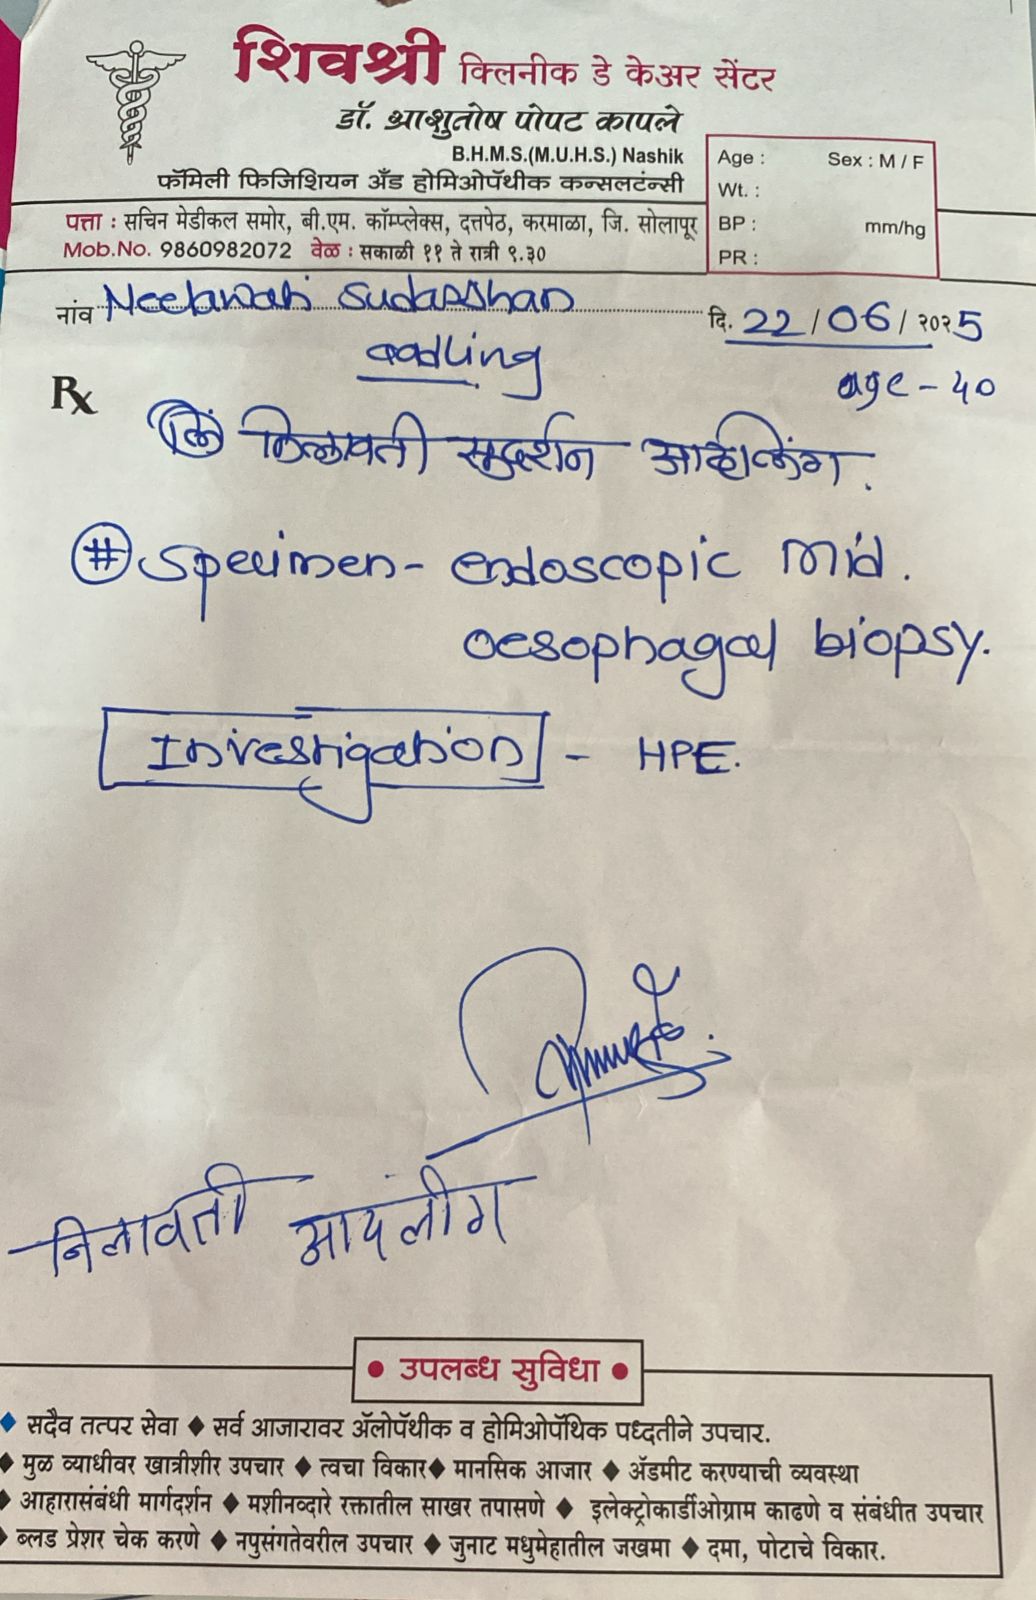 शिवश्री क्लिनीक डे केअर सेंटर
डॉ. आशुतोष पोपट कापले
B.H.M.S.(M.U.H.S.) Nashik
फॅमिली फिजिशियन अँड होमिओपॅथीक कन्सलटंन्सी
Age : Sex : M / F
Wt. :
BP : mm/hg
PR :
पत्ता : सचिन मेडीकल समोर, बी.एम. कॉम्प्लेक्स, दत्तपेठ, करमाळा, जि. सोलापूर
Mob.No. 9860982072 वेळ : सकाळी ११ ते रात्री ९.३०
नांव Neelawati Sudarshan दि. 22/06/२०२5
aadling
age - 40
Rx
निलावती सुदर्शन
# Specimen - endoscopic Mid.
oesophagal biopsy.
Investigation - HPE.
निलावती आदलींग
• उपलब्ध सुविधा •
◆ सदैव तत्पर सेवा ◆ सर्व आजारावर ॲलोपॅथीक व होमिओपॅथिक पध्दतीने उपचार.
◆ मुळ व्याधीवर खात्रीशीर उपचार ◆ त्वचा विकार◆ मानसिक आजार ◆ ॲडमीट करण्याची व्यवस्था
◆ आहारासंबंधी मार्गदर्शन ◆ मशीनव्दारे रक्तातील साखर तपासणे ◆ इलेक्ट्रोकार्डीओग्राम काढणे व संबंधीत उपचार
◆ ब्लड प्रेशर चेक करणे ◆ नपुसंगतेवरील उपचार ◆ जुनाट मधुमेहातील जखमा ◆ दमा, पोटाचे विकार.